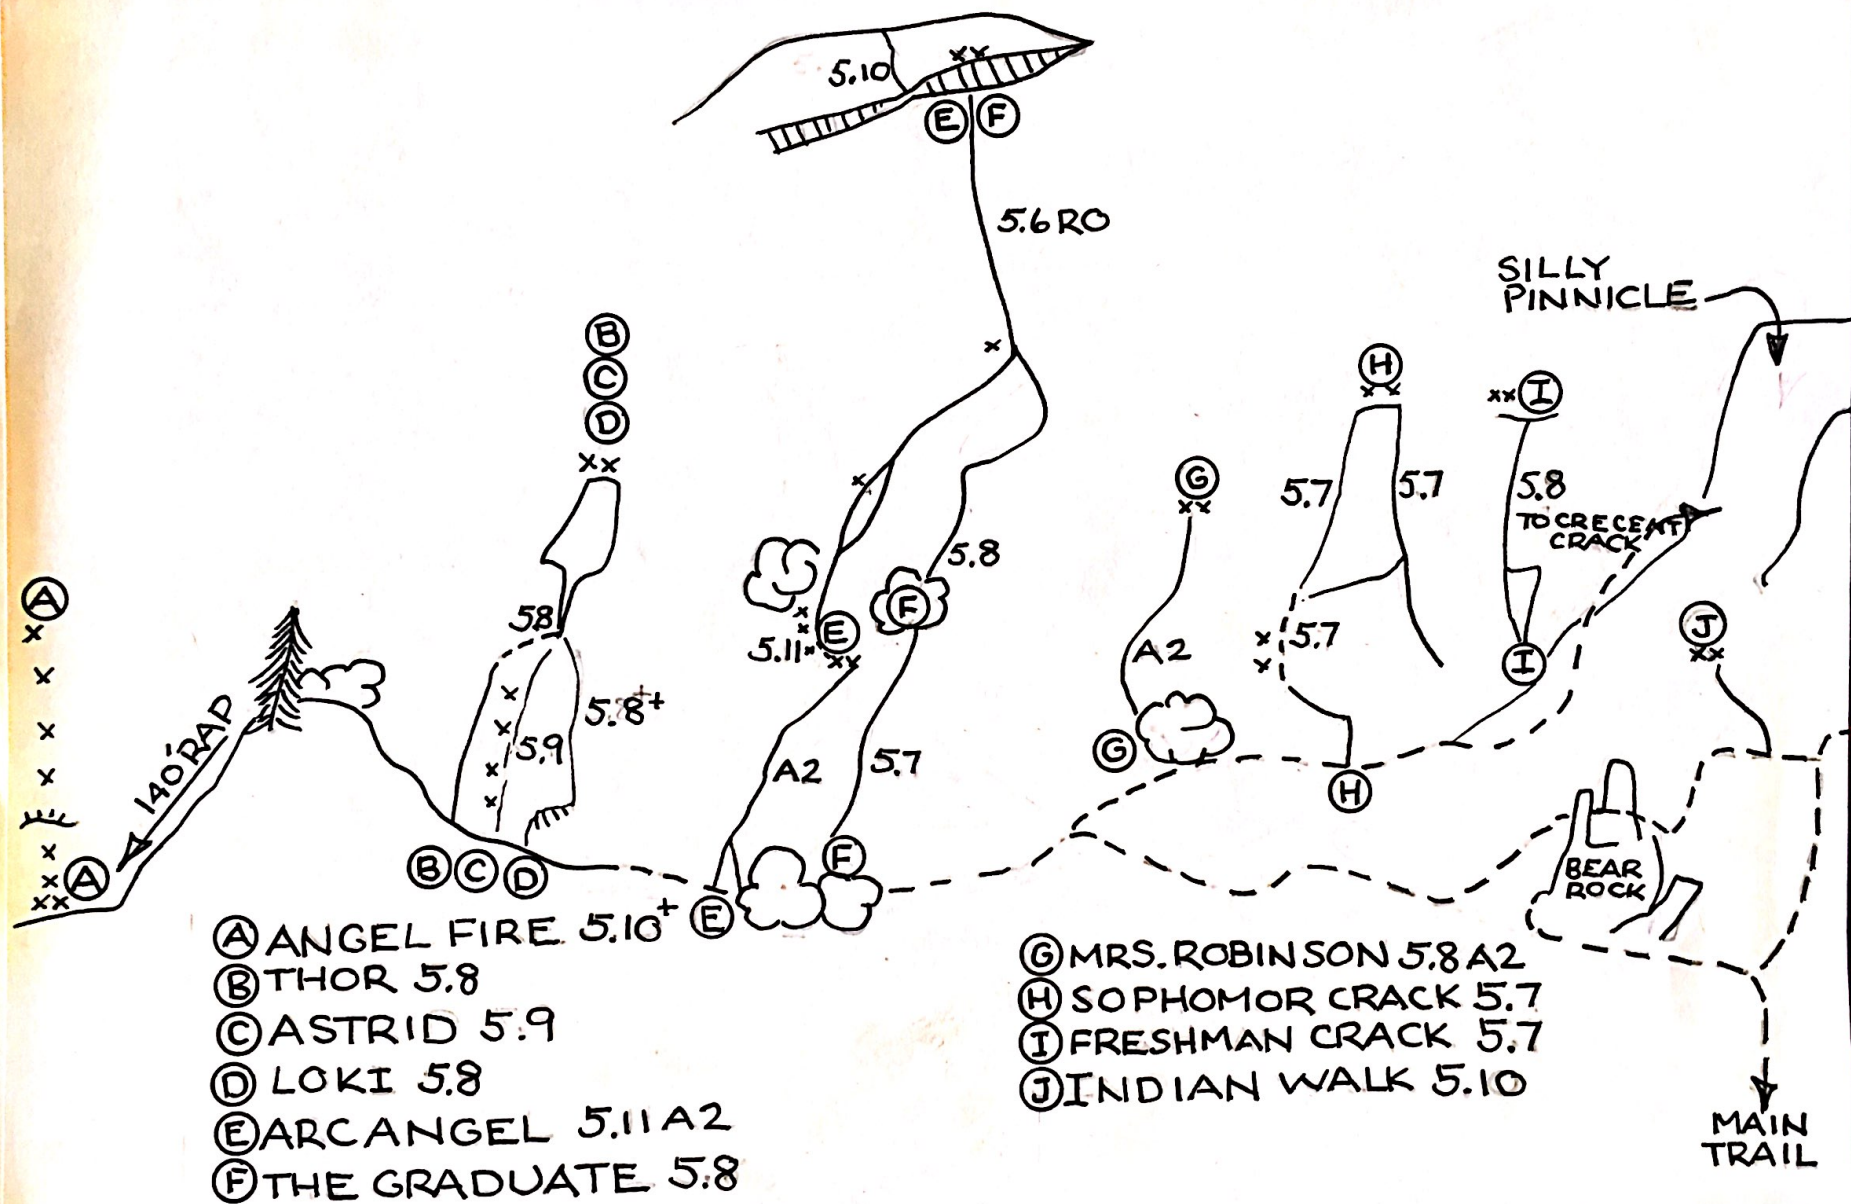 5.10
XX
E F
5.6 RO
SILLY
PINNICLE
X
B
C
D
XX
H
XX
XX I
G
XX
5.7
5.7
5.8
TO CRECEAT
CRACK
X
5.8
A
X
X
X
X
X
X
XX A
140' RAP
5.8
X
X
X
X
5.9
5.8+
X
X
5.11 X
E
XX
F
A2
5.7
A2
G
X
X
5.7
H
I
J
XX
B C D
E
F
BEAR
ROCK
A ANGEL FIRE 5.10+
B THOR 5.8
C ASTRID 5.9
D LOKI 5.8
E ARCANGEL 5.11 A2
F THE GRADUATE 5.8
G MRS. ROBINSON 5.8 A2
H SOPHOMOR CRACK 5.7
I FRESHMAN CRACK 5.7
J INDIAN WALK 5.10
MAIN
TRAIL